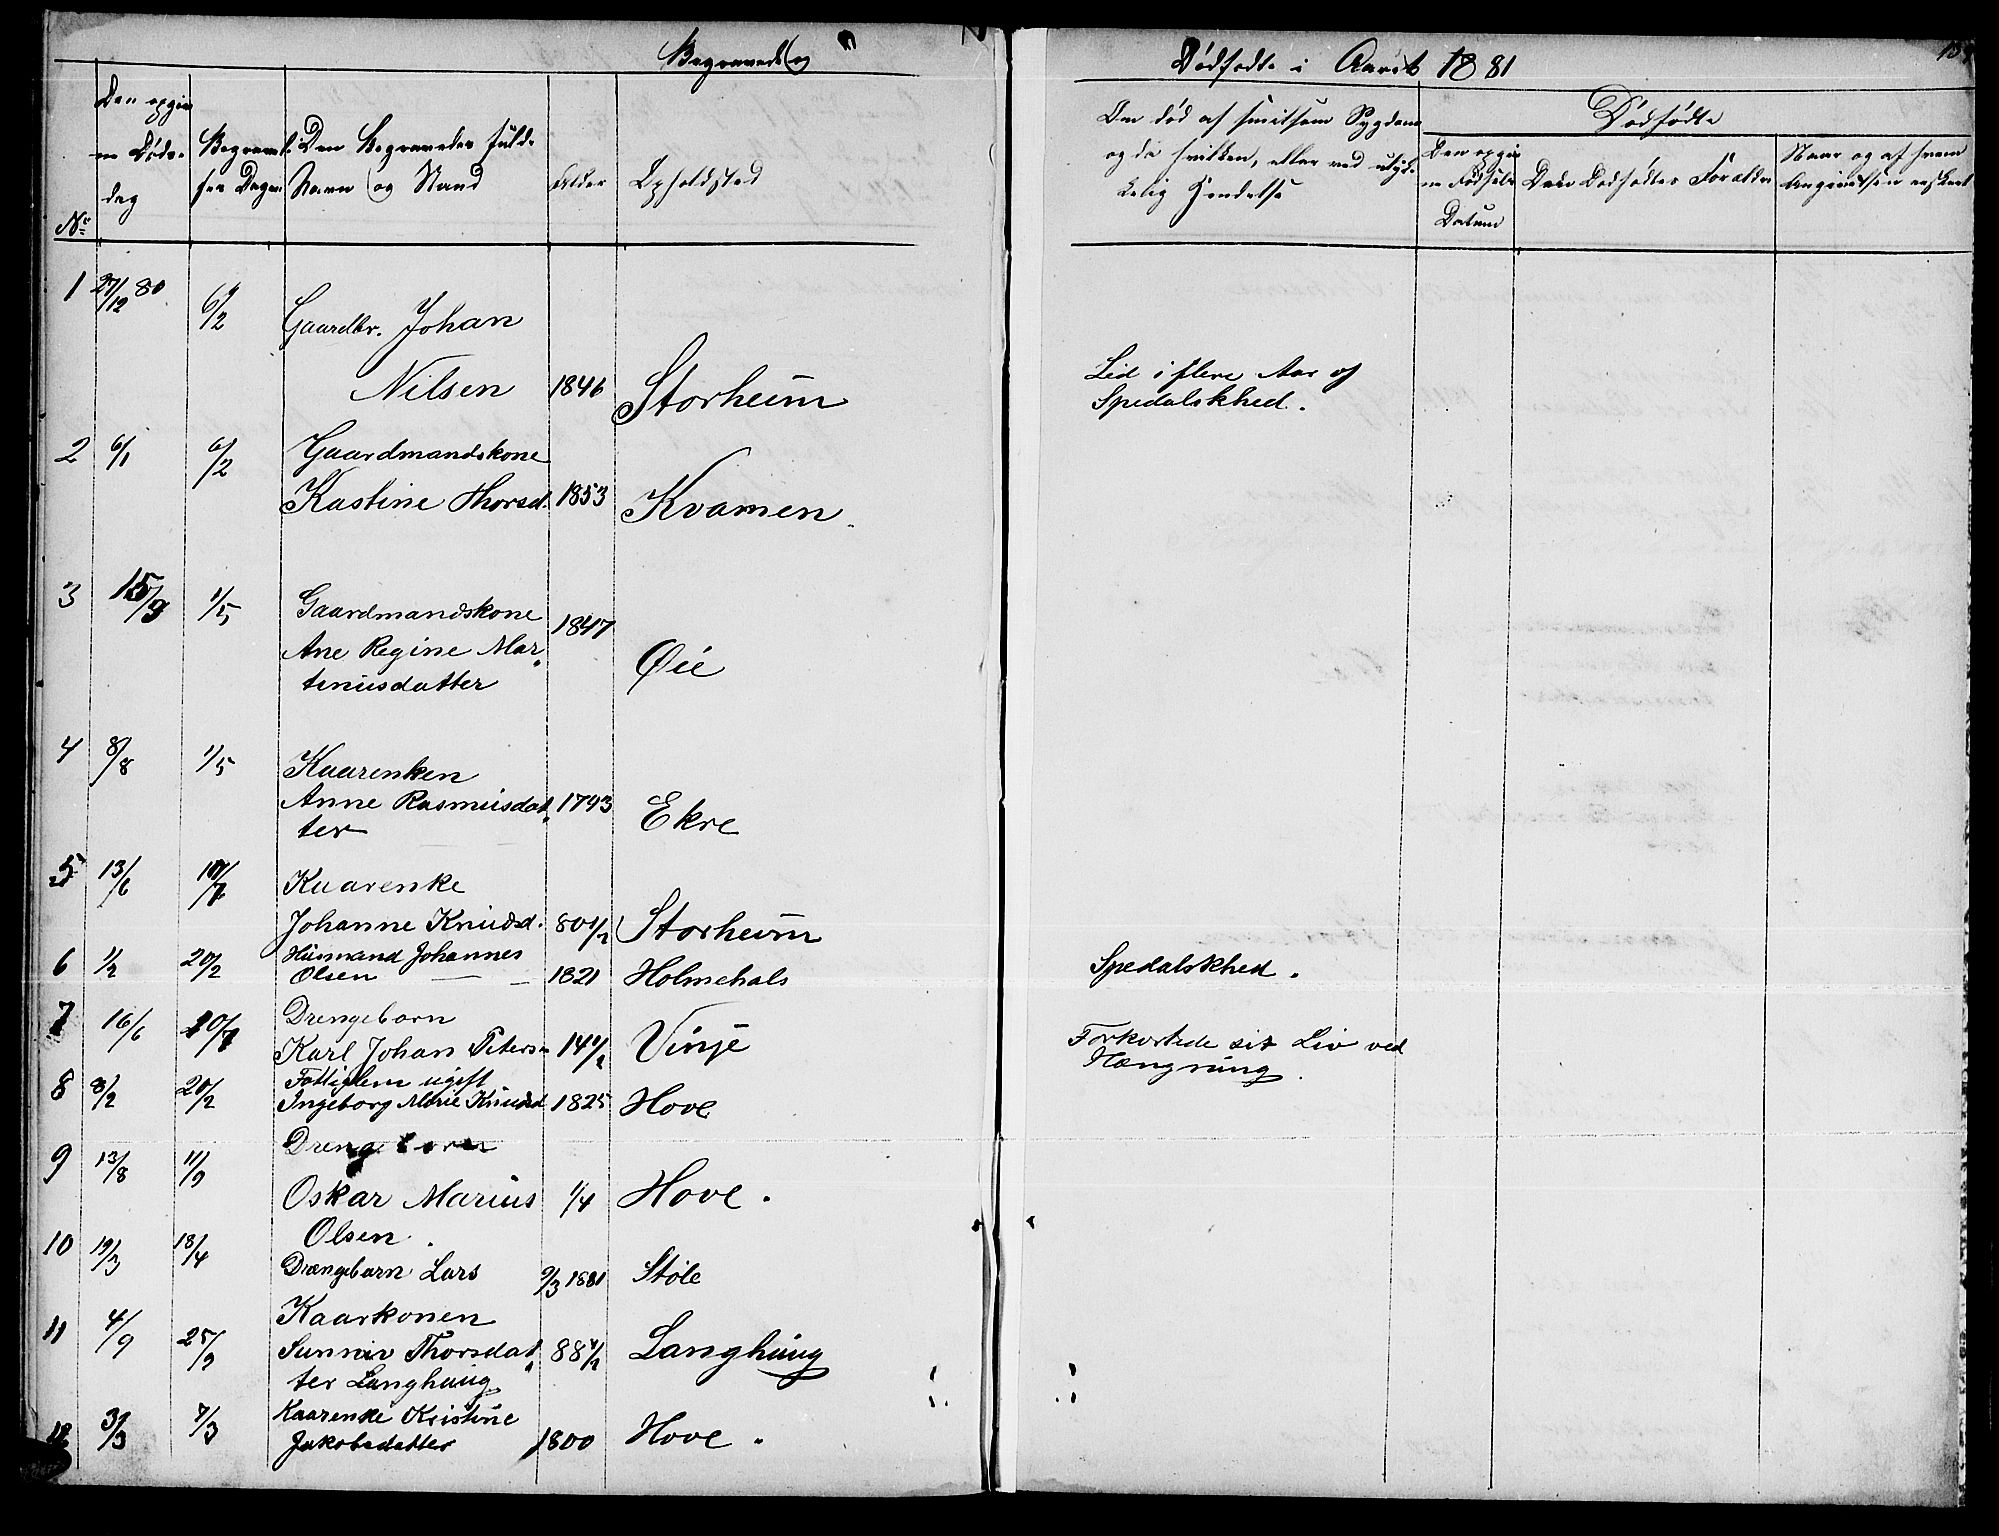 Begravede og
Dødfødte i Aaret 1881
Den opgiv
ne Døds-
dag
Begravel-
ses Dagen
Den Begravedes fulde
Navn og Stand
Alder
Opholdsted
No
Om død af smitsom Sygdom
og da hvilken, eller ved ulyk-
kelig Hendelse
Dødfødte
Den opgiv
ne Fødsels
Datum
Den Dødfødtes Forældre
Naar og af hvem
Angivelsen er skeet
1 27/12 80 6/2 Gaardbr. Johan
Nilsen 1846 Storheim
Lid i flere Aar af
Spedalskhed.
2 6/1 6/2 Gaardmandskone
Kastine Thorsd. 1853 Kvamen.
3 15/3 1/5 Gaardmandskone
Ane Regine Mar-
tinusdatter 1847 Øie
4 8/8 1/5 Kaarenken
Anne Rasmusdat-
ter 1793 Ekre
5 13/6 10/7 Kaarenke
Johanne Knudsd. 80 1/2 Storheim
6 1/2 20/2 Husmand Johannes
Olsen 1821 Holmehals
Spedalskhed.
7 16/6 10/7 Drengebarn
Karl Johan Petersen 14 1/2 Vinje
Forkortede sit Liv ved
Hængning.
8 8/2 20/2 Fattiglem ugift
Ingeborg Marie Knudsd 1825 Hove
9 13/8 11/9 Drengebarn
Oskar Marius 1/4 Hove.
Olsen.
10 19/3 18/4 Drengebarn Lars 9/3 1881 Støle
11 4/9 25/9 Kaarkonen
Sunniv Thorsdat-
ter Langhaug 88 1/2 Langhaug
12 3/3 7/3 Kaarenke Kristine
Jakobsdatter 1800 Hove.